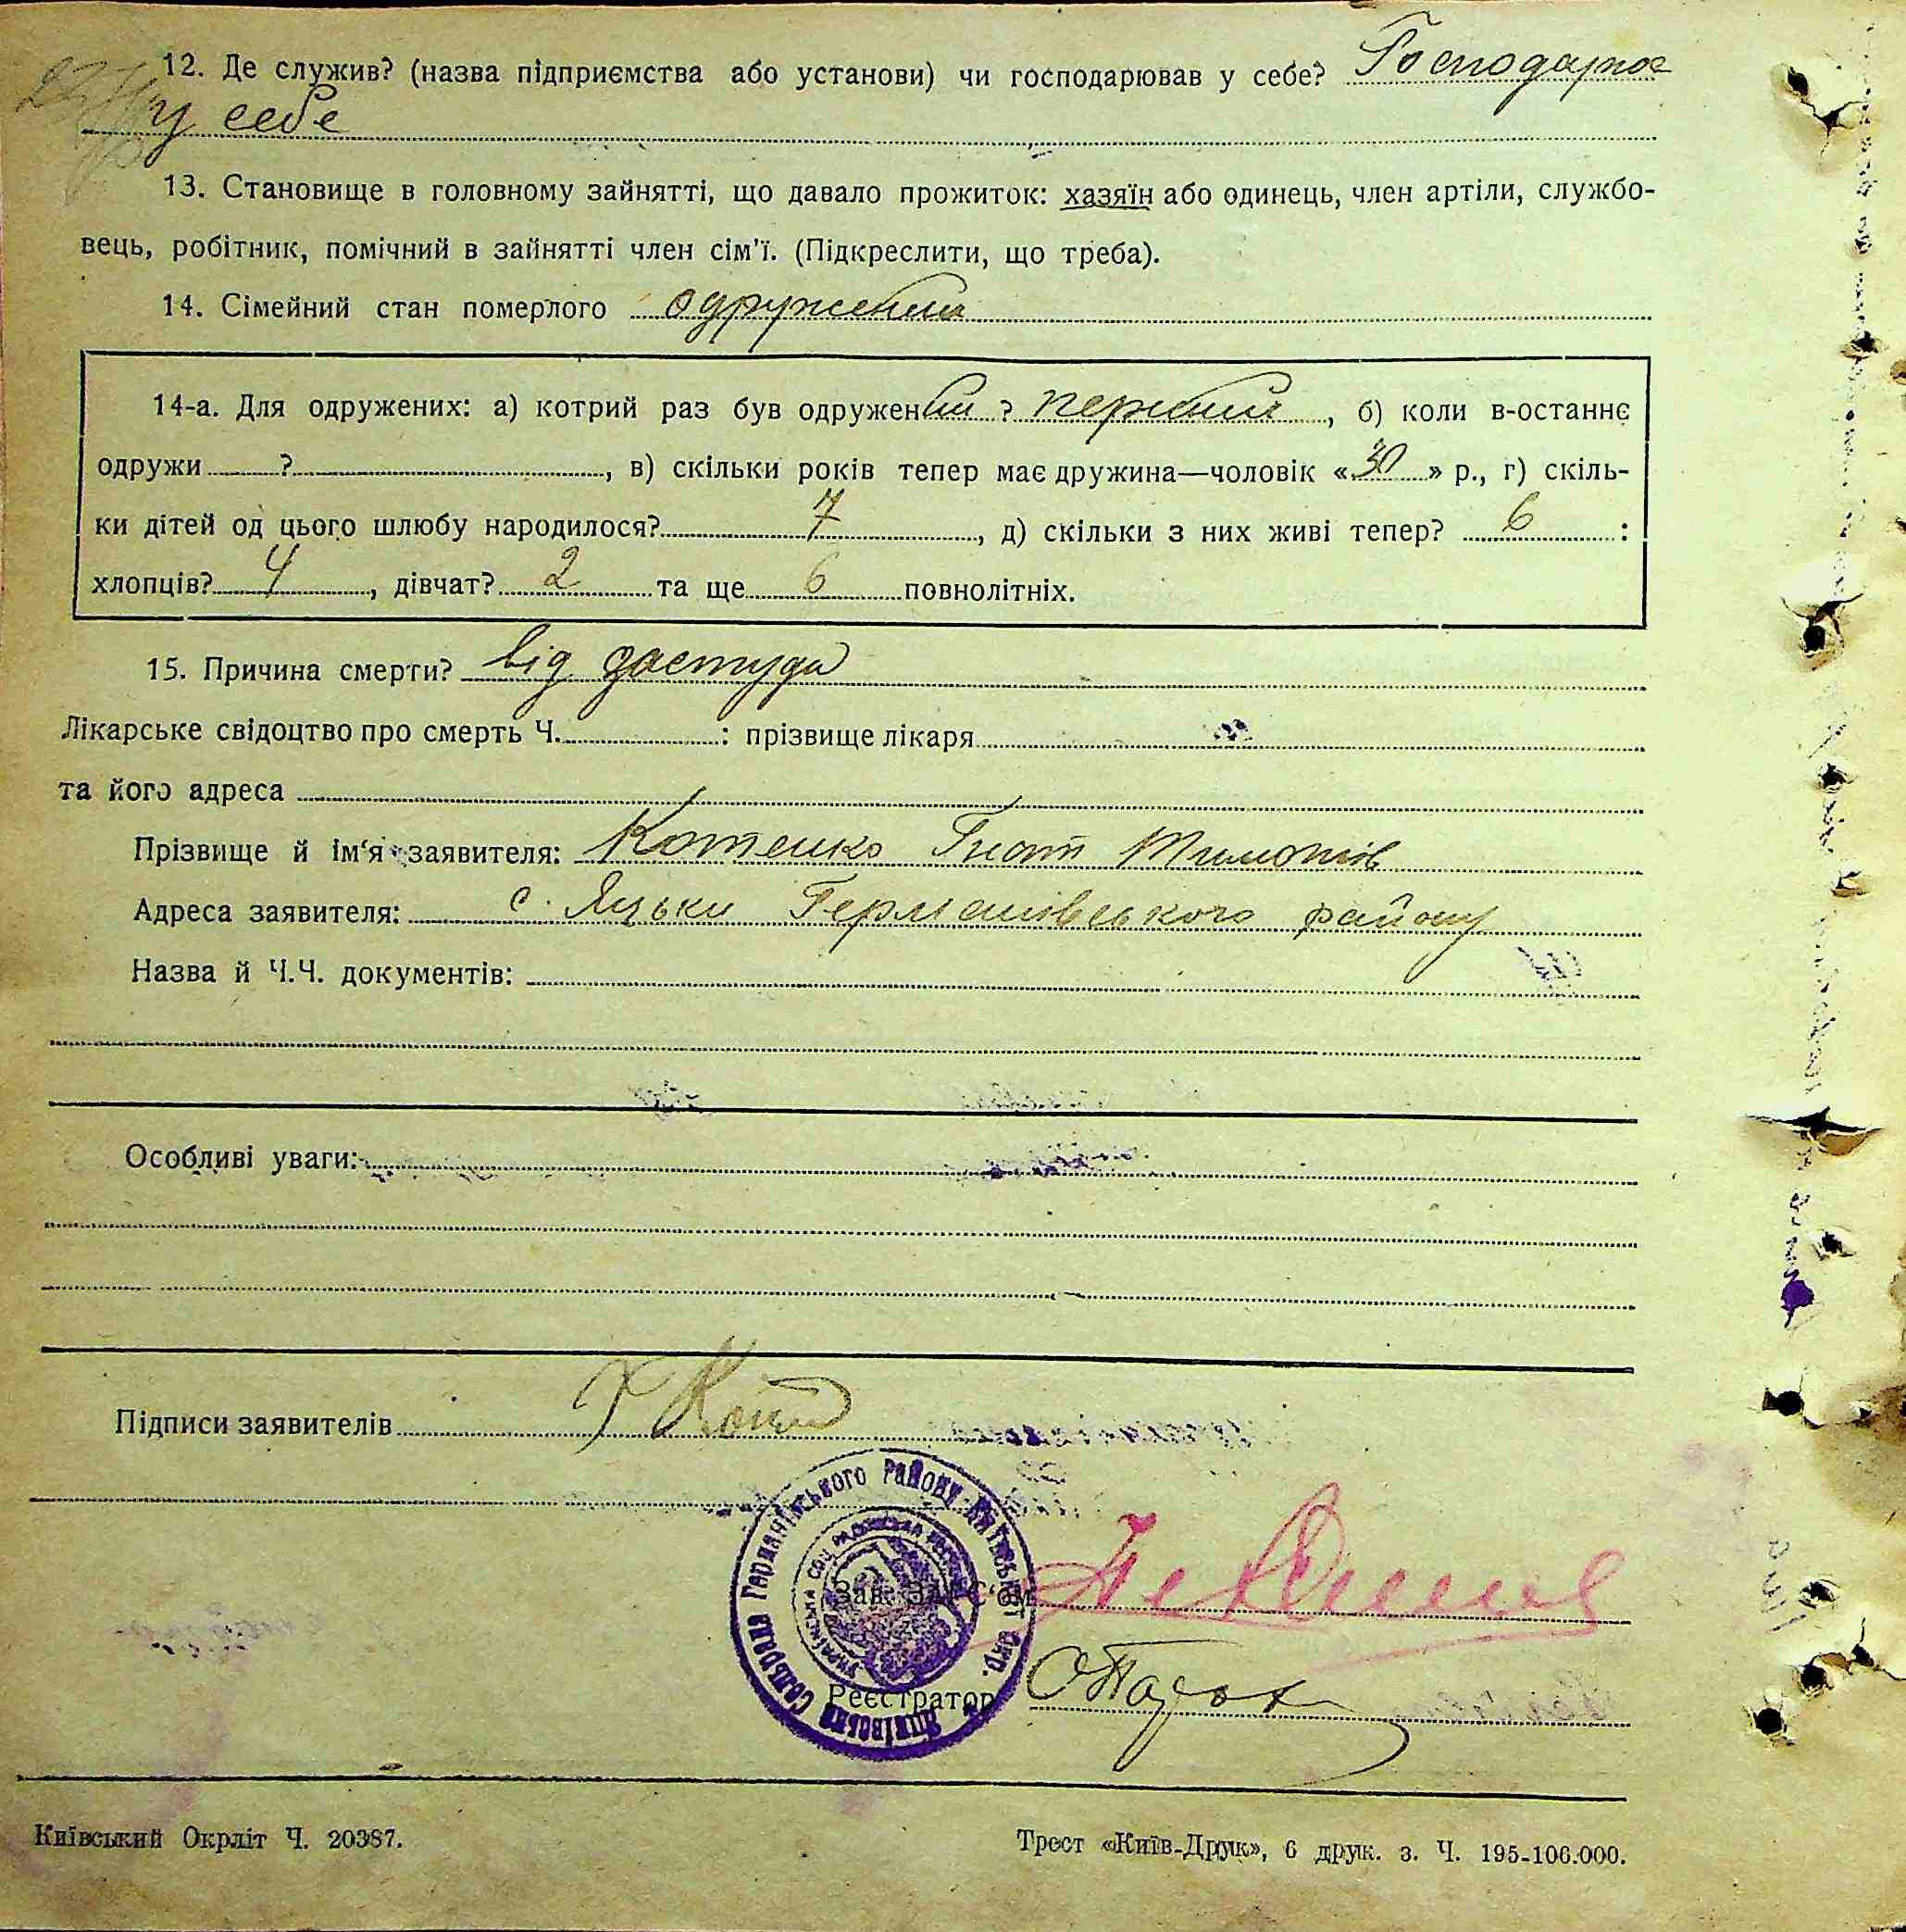 12. Де служив? (назва підприємства або установи) чи господарював у себе? Господарює
у себе
13. Становище в головному зайнятті, що давало прожиток: хазяїн або одинець, член артіли, службо-
вець, робітник, помічний в зайнятті член сім'ї. (Підкреслити, що треба).
14. Сімейний стан померлого одружений
14-а. Для одружених: а) котрий раз був одружений ? первий, б) коли в-останнє
одружи ? , в) скільки років тепер має дружина—чоловік «30» р., г) скіль-
ки дітей од цього шлюбу народилося? 7, д) скільки з них живі тепер? 6 :
хлопців? 4, дівчат? 2 та ще 6 повнолітніх.
15. Причина смерти? від застуди
Лікарське свідоцтво про смерть Ч. : прізвище лікаря
та його адреса
Прізвище й ім'я заявителя: Котенко Гнат Тимотів
Адреса заявителя: с. Яцьки Германівського району
Назва й Ч.Ч. документів:
Особливі уваги:
Підписи заявителів
Яцківська Сельрада Германівського району Київської Окр.
Зав. ЗАГС'ом
Реєстратор
Київський Окрліт Ч. 20387.
Трест «Київ-Друк», 6 друк. з. Ч. 195-106.000.